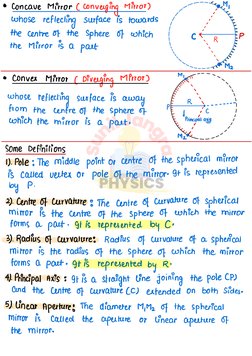 • Concave Mirror (Converging Mirror)
whose reflecting surface is towards
the centre of the sphere of which
the mirror is a part.
M₁
C
R
P
M₂
• Convex Mirror (Diverging Mirror)
whose reflecting surface is away
from the centre of the sphere of
which the mirror is a part.
M₁
P
R
C
Principal axis
M₂
Some Definitions
1) Pole: The middle point or centre of the spherical mirror
is called vertex or pole of the mirror. It is represented
by P.
2) Centre of Curvature: The centre of curvature of spherical
mirror is the centre of the sphere of which the mirror
forms a part. It is represented by C.
3) Radius of Curvature: Radius of curvature of a spherical
mirror is the radius of the sphere of which the mirror
forms a part. It is represented by R.
4) Principal axis: It is a straight line joining the pole (P)
and the centre of curvature (C) extended on both sides.
5) Linear Aperture: The diameter M₁M₂ of the spherical
mirror is called the aperture or linear aperture of
the mirror.
PHYSICS